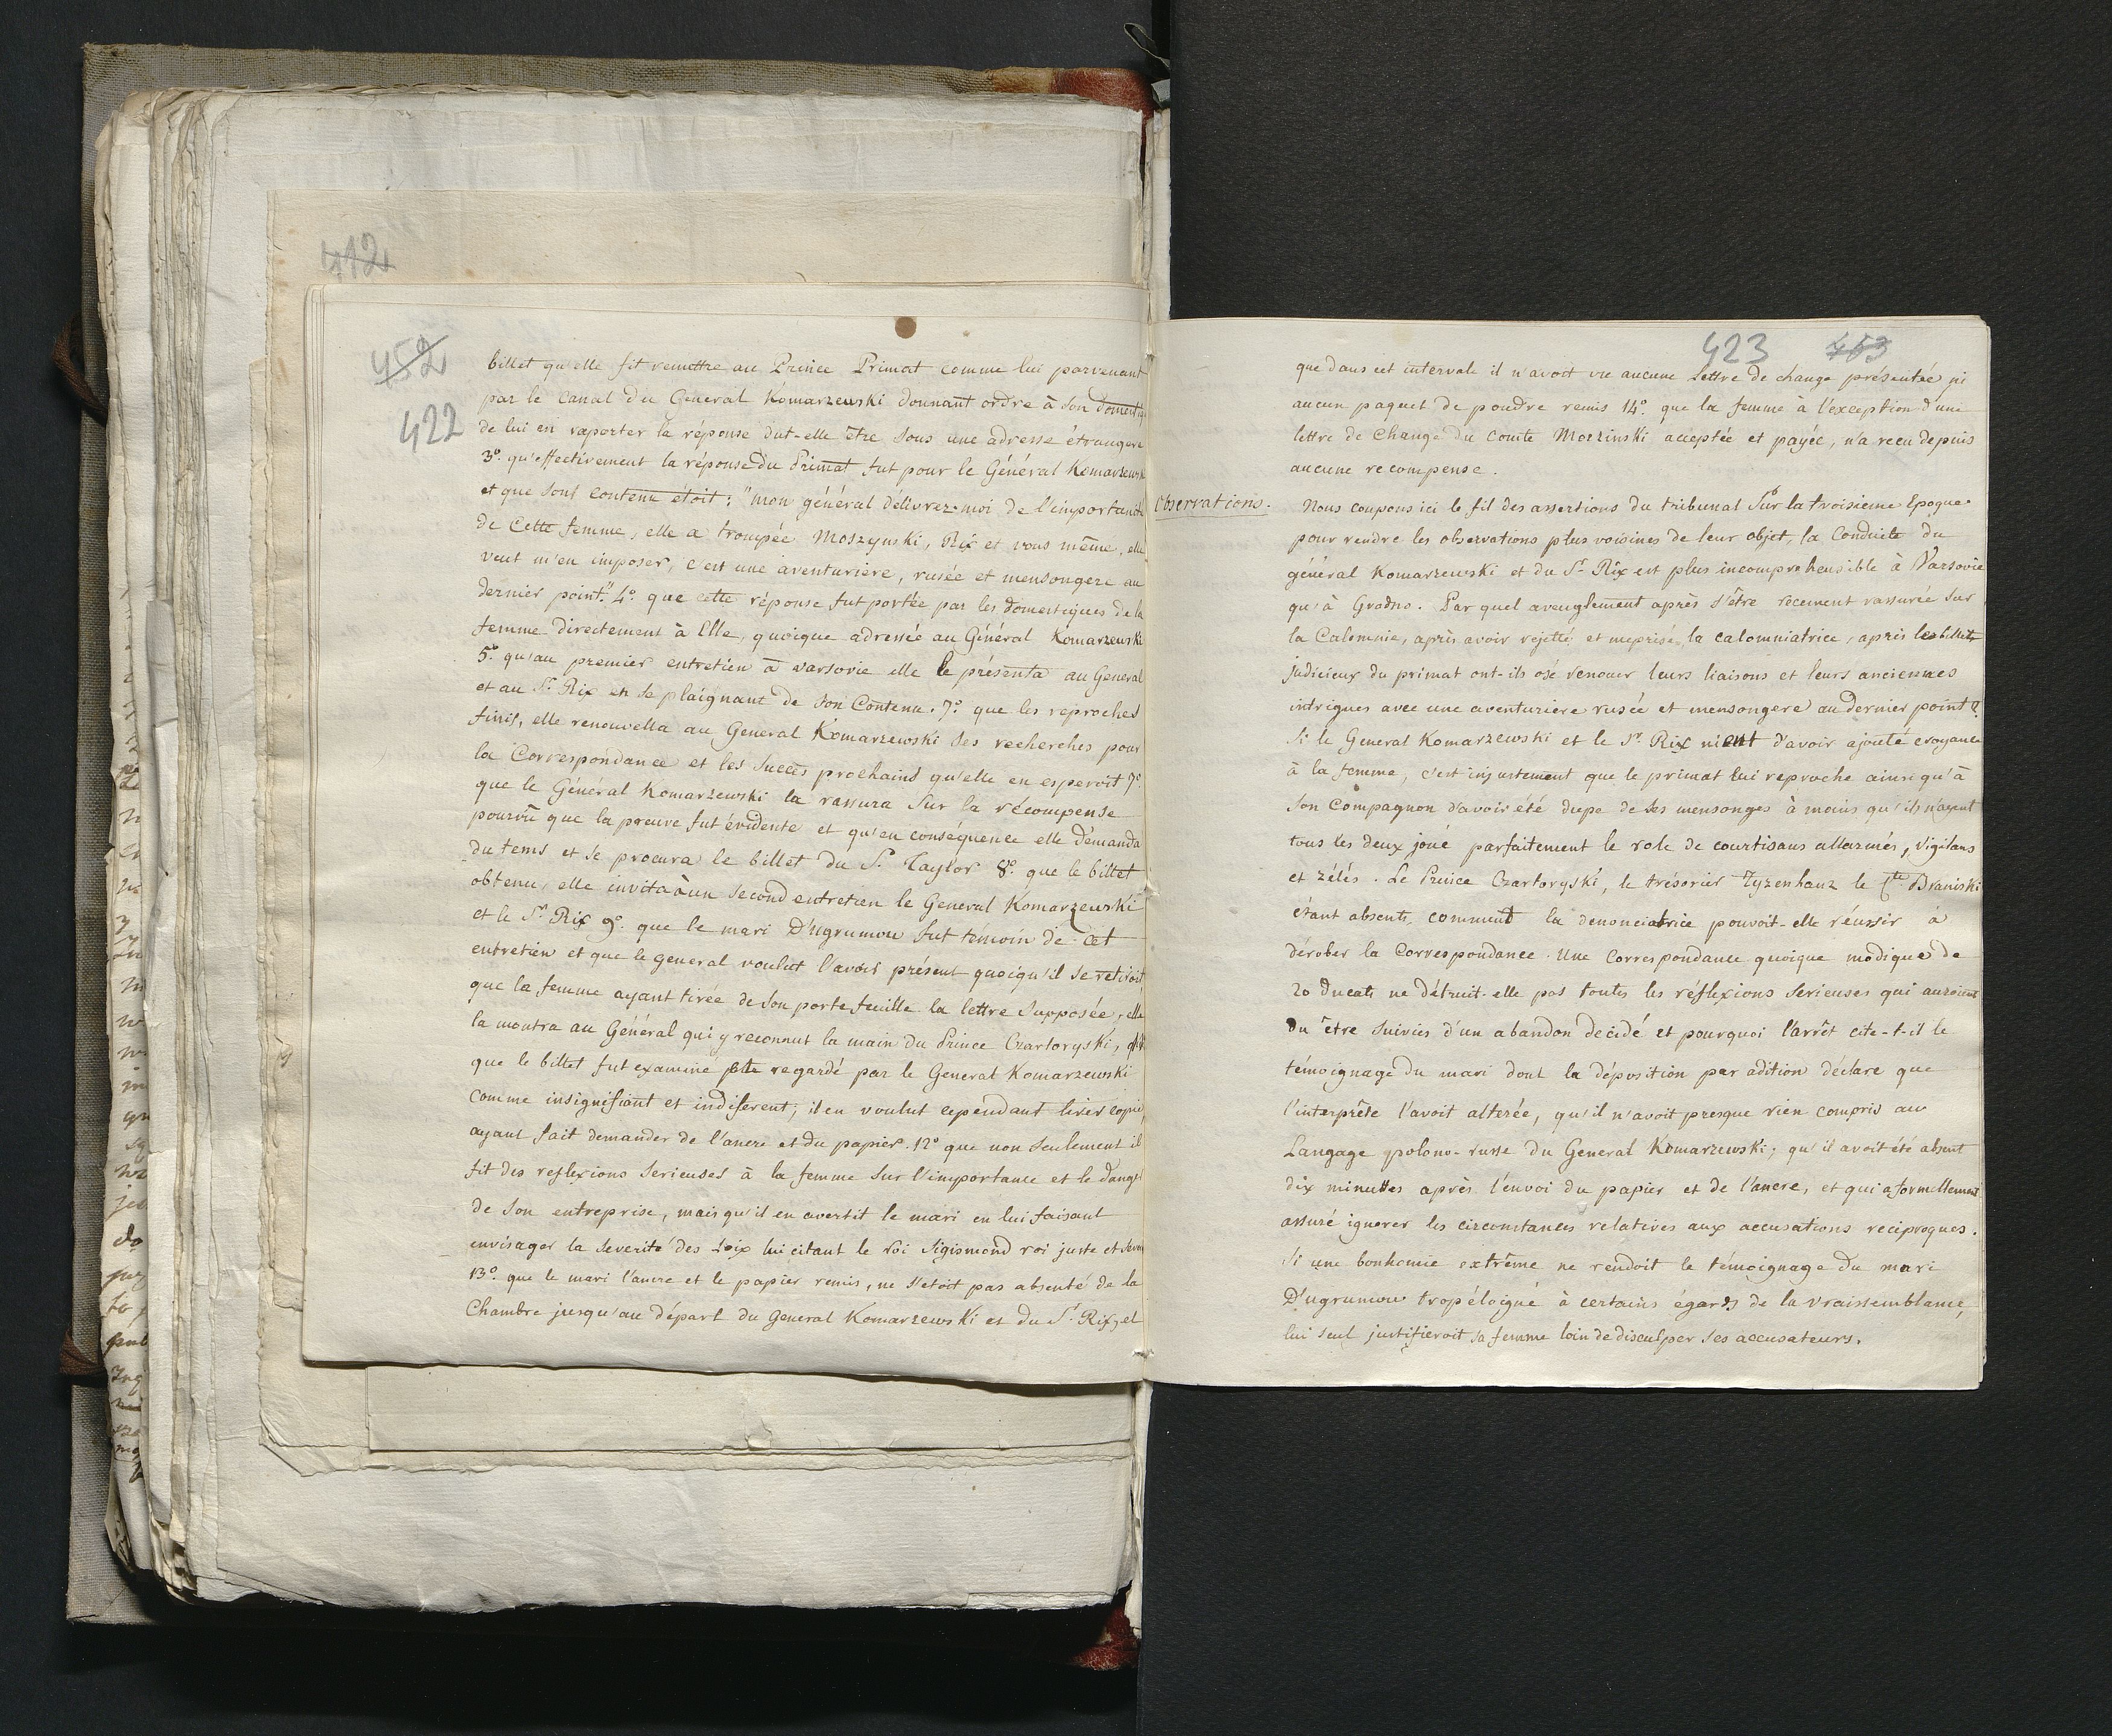 412
452
422
billet qu'elle fit remettre au Prince Primat comme lui parvenant
par le canal du General Komarzewski donnant ordre à son
de lui en raporter la réponse dut-elle être sous une adresse étrangere
3º. qu'effectivement la réponse du Primat fut pour le Général Komarzewski
et que sont contenu étoit: "mon général délivrez-moi de l'importunité
de Cette femme, elle a trompée Moszynski, Rix et vous même, elle
veut m'en imposer, c'est une aventuriere, rusée et mensongere au
dernier point." 4º. que cette réponse fut portée par les domestiques de la
femme directement à Elle, quoique adressée au Général Komarzewski
5º. qu'au premier entretien à varsovie elle le présenta au General
et au Sr. Rix en se plaignant de son Contenu. 7º. que les reproches
finis, elle renouvella au General Komarzewski ses recherches pour
la Correspondance et les succès prochains qu'elle en esperoit 7º.
que le Général Komarzewski la rassura sur la récompense
pourvû que la preuve fut évidente et qu'en conséquence elle demanda
du tems et se procura le billet du Sr. Taylor 8º. que le billet
obtenu, elle invita à un second entretien le General Komarzewski
et le Sr. Rix 9º. que le mari D'ugrumow fut témoin de cet
entretien et que le general voulut l'avoir présent quoiqu'il se retiroit,
que la femme ayant tirée de son porte feuille la lettre supposée, elle
la montra au Général qui y reconnut la main du Prince Czartoryski,
que le billet fut examiné regardé par le General Komarzewski
comme insignifiant et indiferent; il en voulut cependant tirer copie,
ayant fait demander de l'ancre et du papier. 12º que non seulement il
fit des reflexions serieuses à la femme sur l'importance et le dange
de son entreprise, mais qu'il en avertit le mari en lui faisant
envisager la severité des Loix lui citant le roi Sigismond roi juste et
13º. que le mari l'ancre et le papier remis, ne s'etoit pas absenté de la
Chambre jusqu'au départ du General Komarzewski et du Sr. Rix, et
423 453
que dans cet intervale il n'avoit vu aucune Lettre de change présentée ni
aucun paquet de poudre remis 14º. que la femme à l'exception d'une
lettre de Change du comte Moszinski acceptée et payée, n'a recu depuis
aucune recompense.
Observations.
Nous coupons ici le fil des assertions du tribunal Sur la troisieme Epoque
pour rendre les observations plus voisines de leur objet, la Conduite du
général Komarzewski et du Sr. Rix est plus incomprehensible à Varsovie
qu'à Grodno. Par quel aveuglement après s'être récement rassurée sur
la Calomnie, après avoir rejetté et meprisé la calomniatrice, après les billets
judicieux du primat ont-ils osé renouer leurs liaisons et leurs anciennes
intrigues avec une aventuriere rusée et mensongere au dernier point?
Si le General Komarzewski et le Sr. Rix nient d'avoir ajouté croyance
à la femme, c'est injustement que le primat lui reproche ainsi qu'à
son Compagnon d'avoir été dupe de ses mensonges à moins qu'ils n'ayent
tous les deux joué parfaitement le role de courtisans allarmés, vigilans
et zélés. Le Prince Czartoryski, le trésorier Tyzenhauz le Cte. Braniski
étant absents, comment la denonciatrice pouvoit-elle réussir à
dérober la Correspondance. Une Correspondance quoique modique de
20 ducats ne détruit-elle pas toutes les réflexions serieuses qui auroient
du être suivies d'un abandon decidé et pourquoi l'arrêt cite-t-il le
témoignage du mari dont la déposition par adition déclare que
l'interprête l'avoit alterée, qu'il n'avoit presque rien compris au
Langage polono-russe du General Komarzewski; qu'il avoit été absent
dix minuttes après l'envoi du papier et de l'ancre, et qui a formellement
assuré ignorer les circonstances relatives aux accusations reciproques.
Si une bonhomie extrême ne rendoit le témoignage du mari
D'ugrumow trop éloigné à certains égards de la vraissemblance,
lui seul justifieroit sa femme loin de disculper ses accusateurs.